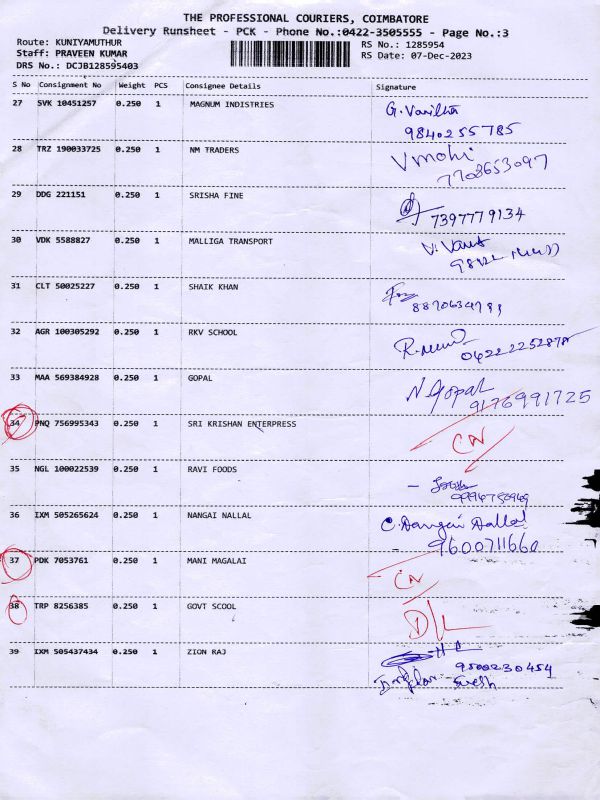 THE PROFESSIONAL COURIERS, COIMBATORE
Delivery Runsheet - PCK - Phone No.:0422-3505555 - Page No.:3
Route: KUNIYAMUTHUR
RS No.: 1285954
Staff: PRAVEEN KUMAR
RS Date: 07-Dec-2023
DRS No.: DCJB12859S403
S No Consignment No Weight PCS Consignee Details Signature
27 SVK 10451257 0.250 1 MAGNUM INDISTRIES G. Vanitha
9840255785
28 TRZ 190033725 0.250 1 NM TRADERS V mohi
7708653097
29 DDG 221151 0.250 1 SRISHA FINE
7397779134
30 VDK 5588827 0.250 1 MALLIGA TRANSPORT
31 CLT 50025227 0.250 1 SHAIK KHAN
32 AGR 100305292 0.250 1 RKV SCHOOL
33 MAA 569384928 0.250 1 GOPAL N. Gopal
9176991725
34 PNQ 756995343 0.250 1 SRI KRISHAN ENTERPRESS CN
35 NGL 100022539 0.250 1 RAVI FOODS
36 IXM 505265624 0.250 1 NANGAI NALLAL C. Dangai Dallal
9600711660
37 PDK 7053761 0.250 1 MANI MAGALAI CN
38 TRP 8256385 0.250 1 GOVT SCOOL D/L
39 IXM 505437434 0.250 1 ZION RAJ
9500230454